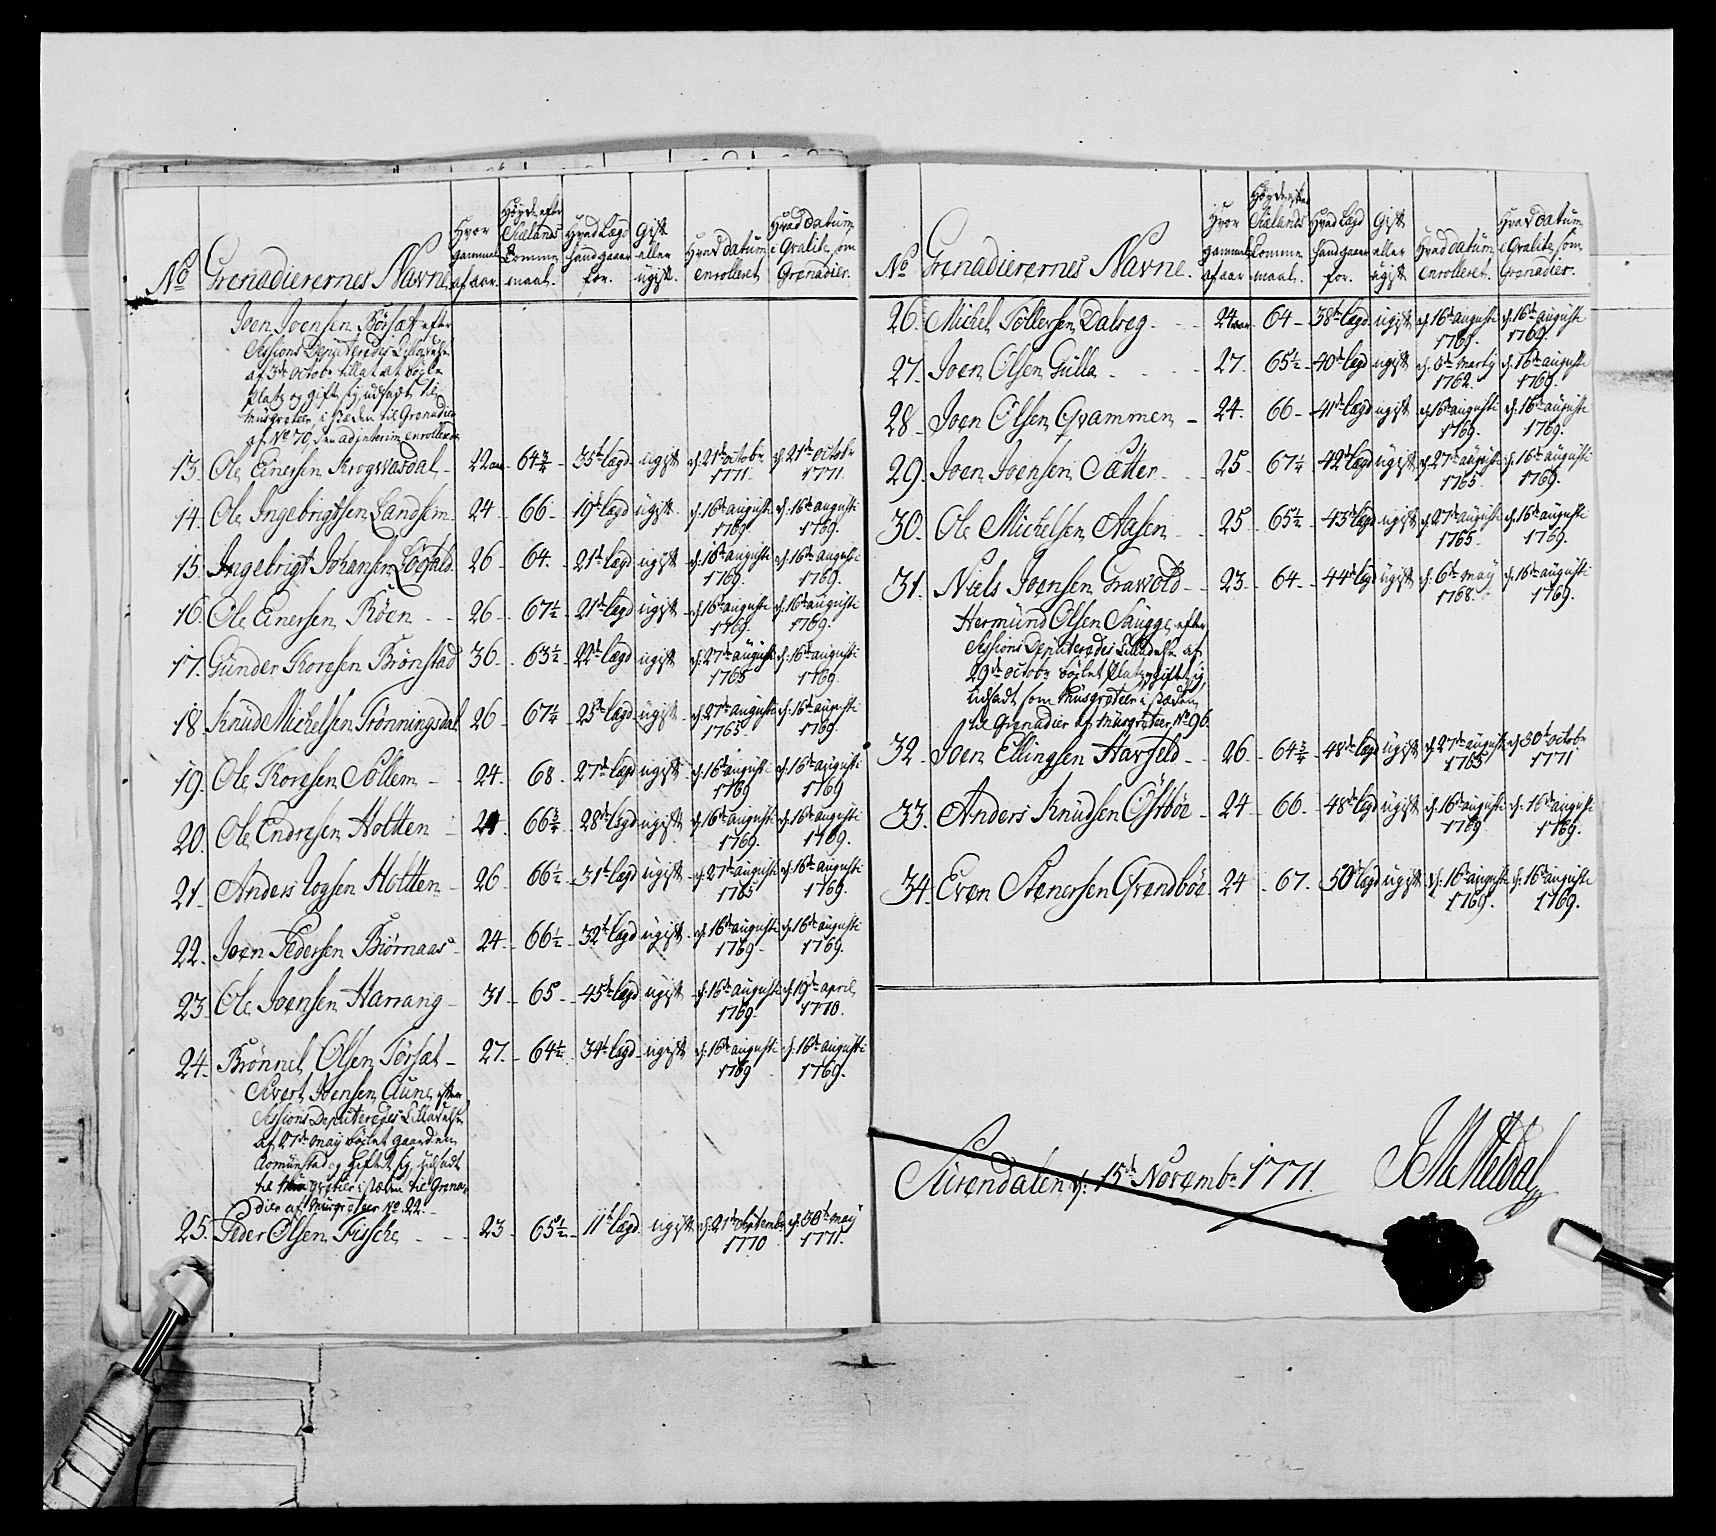 No Grenadierernes Navne. Hvor gammel af aar. Høyde efter Siælands Comme maal. Hvad Lægd hand gaaer for. Gift eller ugift. Hvad datum enrolleret. Hvad datum i Qvalite som Grenadier.
Joen Joensen Børsæt efter
Sessions Deputeredes Tilladelse
af 3de octobr tillat at bøxle
Platz og gifte sig, udsadt til
Musqveteer, i stæden til Grenadier
af No 70, den ad interim enrollerede
13. Ole Einersen Krogsvasdal 22 aar 64 3/4 35te lægd ugift d. 21de octobr 1771. d. 21de octobr 1771.
14. Ole Ingebrigtsen Landsem 24 66 19de lægd ugift d. 16de augusti 1769 d. 16de augusti 1769.
15. Ingebrigt Johansen Løgfald 26 64. 21de lægd ugift d. 16de augusti 1769. d. 16de augusti 1769.
16. Ole Einersen Røen 26 67 1/2 21de lægd ugift d. 16de augusti 1769. d. 16de augusti 1769.
17. Gunder Toresen Brønstad 36 63 1/2 22de lægd ugift d. 27de augusti 1765 d. 16de augusti 1769.
18 Knud Michelsen Trønningsdal 26 67 1/4 25de lægd ugift d. 27de augusti 1765. d. 16de augusti 1769.
19. Ole Toresen Sollem 24. 68 27de lægd ugift d. 16de augusti 1769 d. 16de augusti 1769
20. Ole Endresen Holtten 24 66 3/4 28de lægd ugift d. 16de augusti 1769. d. 16de augusti 1769.
21. Anders Joysen Holtten 26 66 1/2 31te lægd ugift d. 27de augusti 1765 d. 16de augusti 1769.
22. Joen Pedersen Biørnaas 24 66 1/2 32te lægd ugift d. 16de augusti 1769 d. 16de augusti 1769.
23. Ole Joensen Harrang 31 65 45de lægd ugift d. 16de augusti 1769 d. 19de april 1770.
24. Brønnel Olsen Tørsæt 27. 64 1/2 34te lægd ugift d. 16de augusti 1769 d. 16de augusti 1769.
Sivert Joensen Aune efter
Sessions Deputeredes Tilladelse
af 27de may bøxlet gaarden
Romunstad og giftet sig, udsadt
til Musqveteer i stæden til Grena-
dier af Musqveteer No. 22.
25. Peder Olsen Fissche 23 65 1/2 11te lægd ugift d. 21de septembr 1770 d. 30te may 1771.
No Grenadierernes Navne. Hvor gammel af aar Høyde efter Siælands Comme maal. Hvad Lægd hand gaaer for. Gift eller ugift Hvad datum enrolleret. Hvad datum i Qvalite som Grenadier.
26. Michel Tollersen Dalseg 24 aar 64 38te lægd ugift d. 16de augusti 1769. d. 16de augusti 1769.
27. Joen Olsen Gulla 27. 65 1/2 40de lægd ugift d. 6de Marty 1762. d. 16de augusti 1769.
28. Joen Olsen Qvammen 24. 66 41de lægd ugift d. 16de augusti 1769. d. 16de augusti 1769.
29. Joen Joensen Sætter 25. 67 1/4 42de lægd ugift d. 27de augusti 1765 d. 16de augusti 1769.
30. Ole Michelsen Aasen 25 65 1/2 43de lægd ugift d. 27de augusti 1765 d. 16de augusti 1769.
31. Niels Joensen Gravold 23. 64 44de lægd ugift d. 6te may 1768. d. 16de augusti 1769.
Hermund Olsen Saugge efter
Sessions Deputeredes Tilladelse af
29de octobr bøxlet Platz, giftet sig,
udsadt som Musqveteer i stæden
til Grenadier af Musqveteer No. 96
32. Joen Ellingsen Harfeld 26 64 3/4 48de lægd ugift d. 27de augusti 1765 d. 30te octobr 1771
33. Anders Knudsen Østbøe 24 66 48de lægd ugift d. 16de augusti 1769 d. 16de augusti 1769.
34. Even Stenersen Grandbøe 24 67. 50de lægd ugift d. 16de augusti 1769. d. 16de augusti 1769.
Surendalen d. 15de Novembr 1771. Meldal